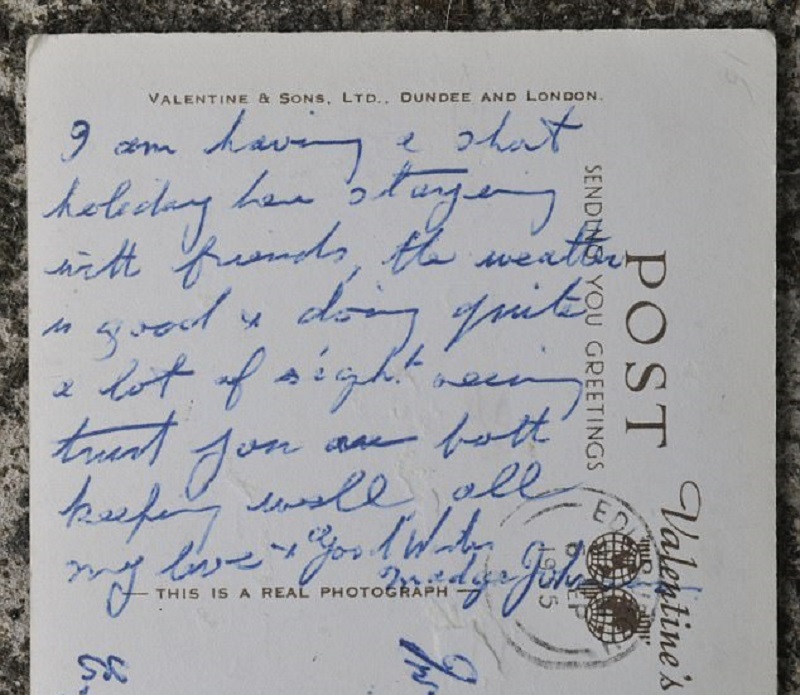 VALENTINE & SONS, LTD., DUNDEE AND LONDON.
I am having a short
holiday here staying
with friends, the weather
is good & doing quite
a lot of sight seeing
trust you are both
keeping well all
my love & Good Wishes
Madge John
THIS IS A REAL PHOTOGRAPH
SENDING YOU GREETINGS
POST
Valentine's
6 SEP
1955